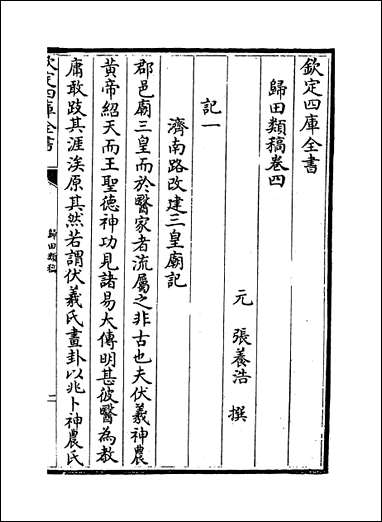 欽定四庫全書
歸田類稿卷四
元 張養浩 撰
記一
濟南路改建三皇廟記
郡邑廟三皇而於醫家者流屬之非古也夫伏羲神農
黄帝紹天而王聖德神功見諸易大傳明甚彼醫為教
庸敢跂其涯涘原其然若謂伏羲氏畫卦以兆卜神農氏
欽定四庫全書
歸田類稿